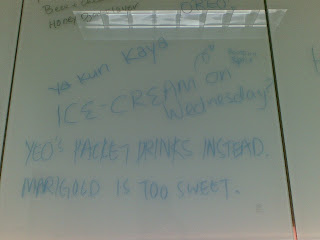 OREO
Ya Kun Kaya
ICE-CREAM on
Wednesday?
YEO'S PACKET DRINKS INSTEAD.
MARIGOLD IS TOO SWEET.